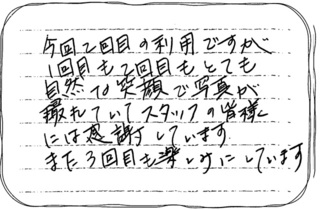 今回2回目の利用ですが
1回目も2回目もとても
自然な笑顔で写真が
撮れていてスタッフの皆様
には感謝しています
また3回目も楽しみにしています